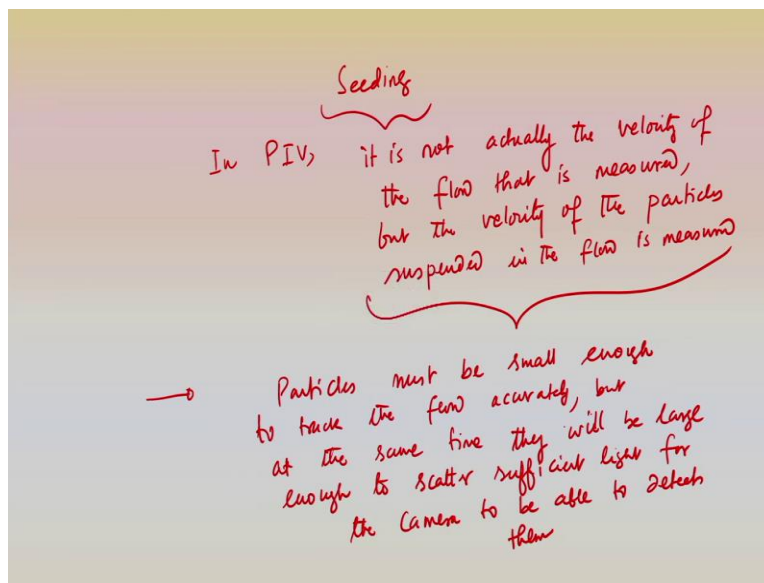 Seeding
In PIV, it is not actually the velocity of
the flow that is measured,
but the velocity of the particles
suspended in the flow is measured
→ Particles must be small enough
to track the flow accurately, but
at the same time they will be large
enough to scatter sufficient light for
the camera to be able to detect
them